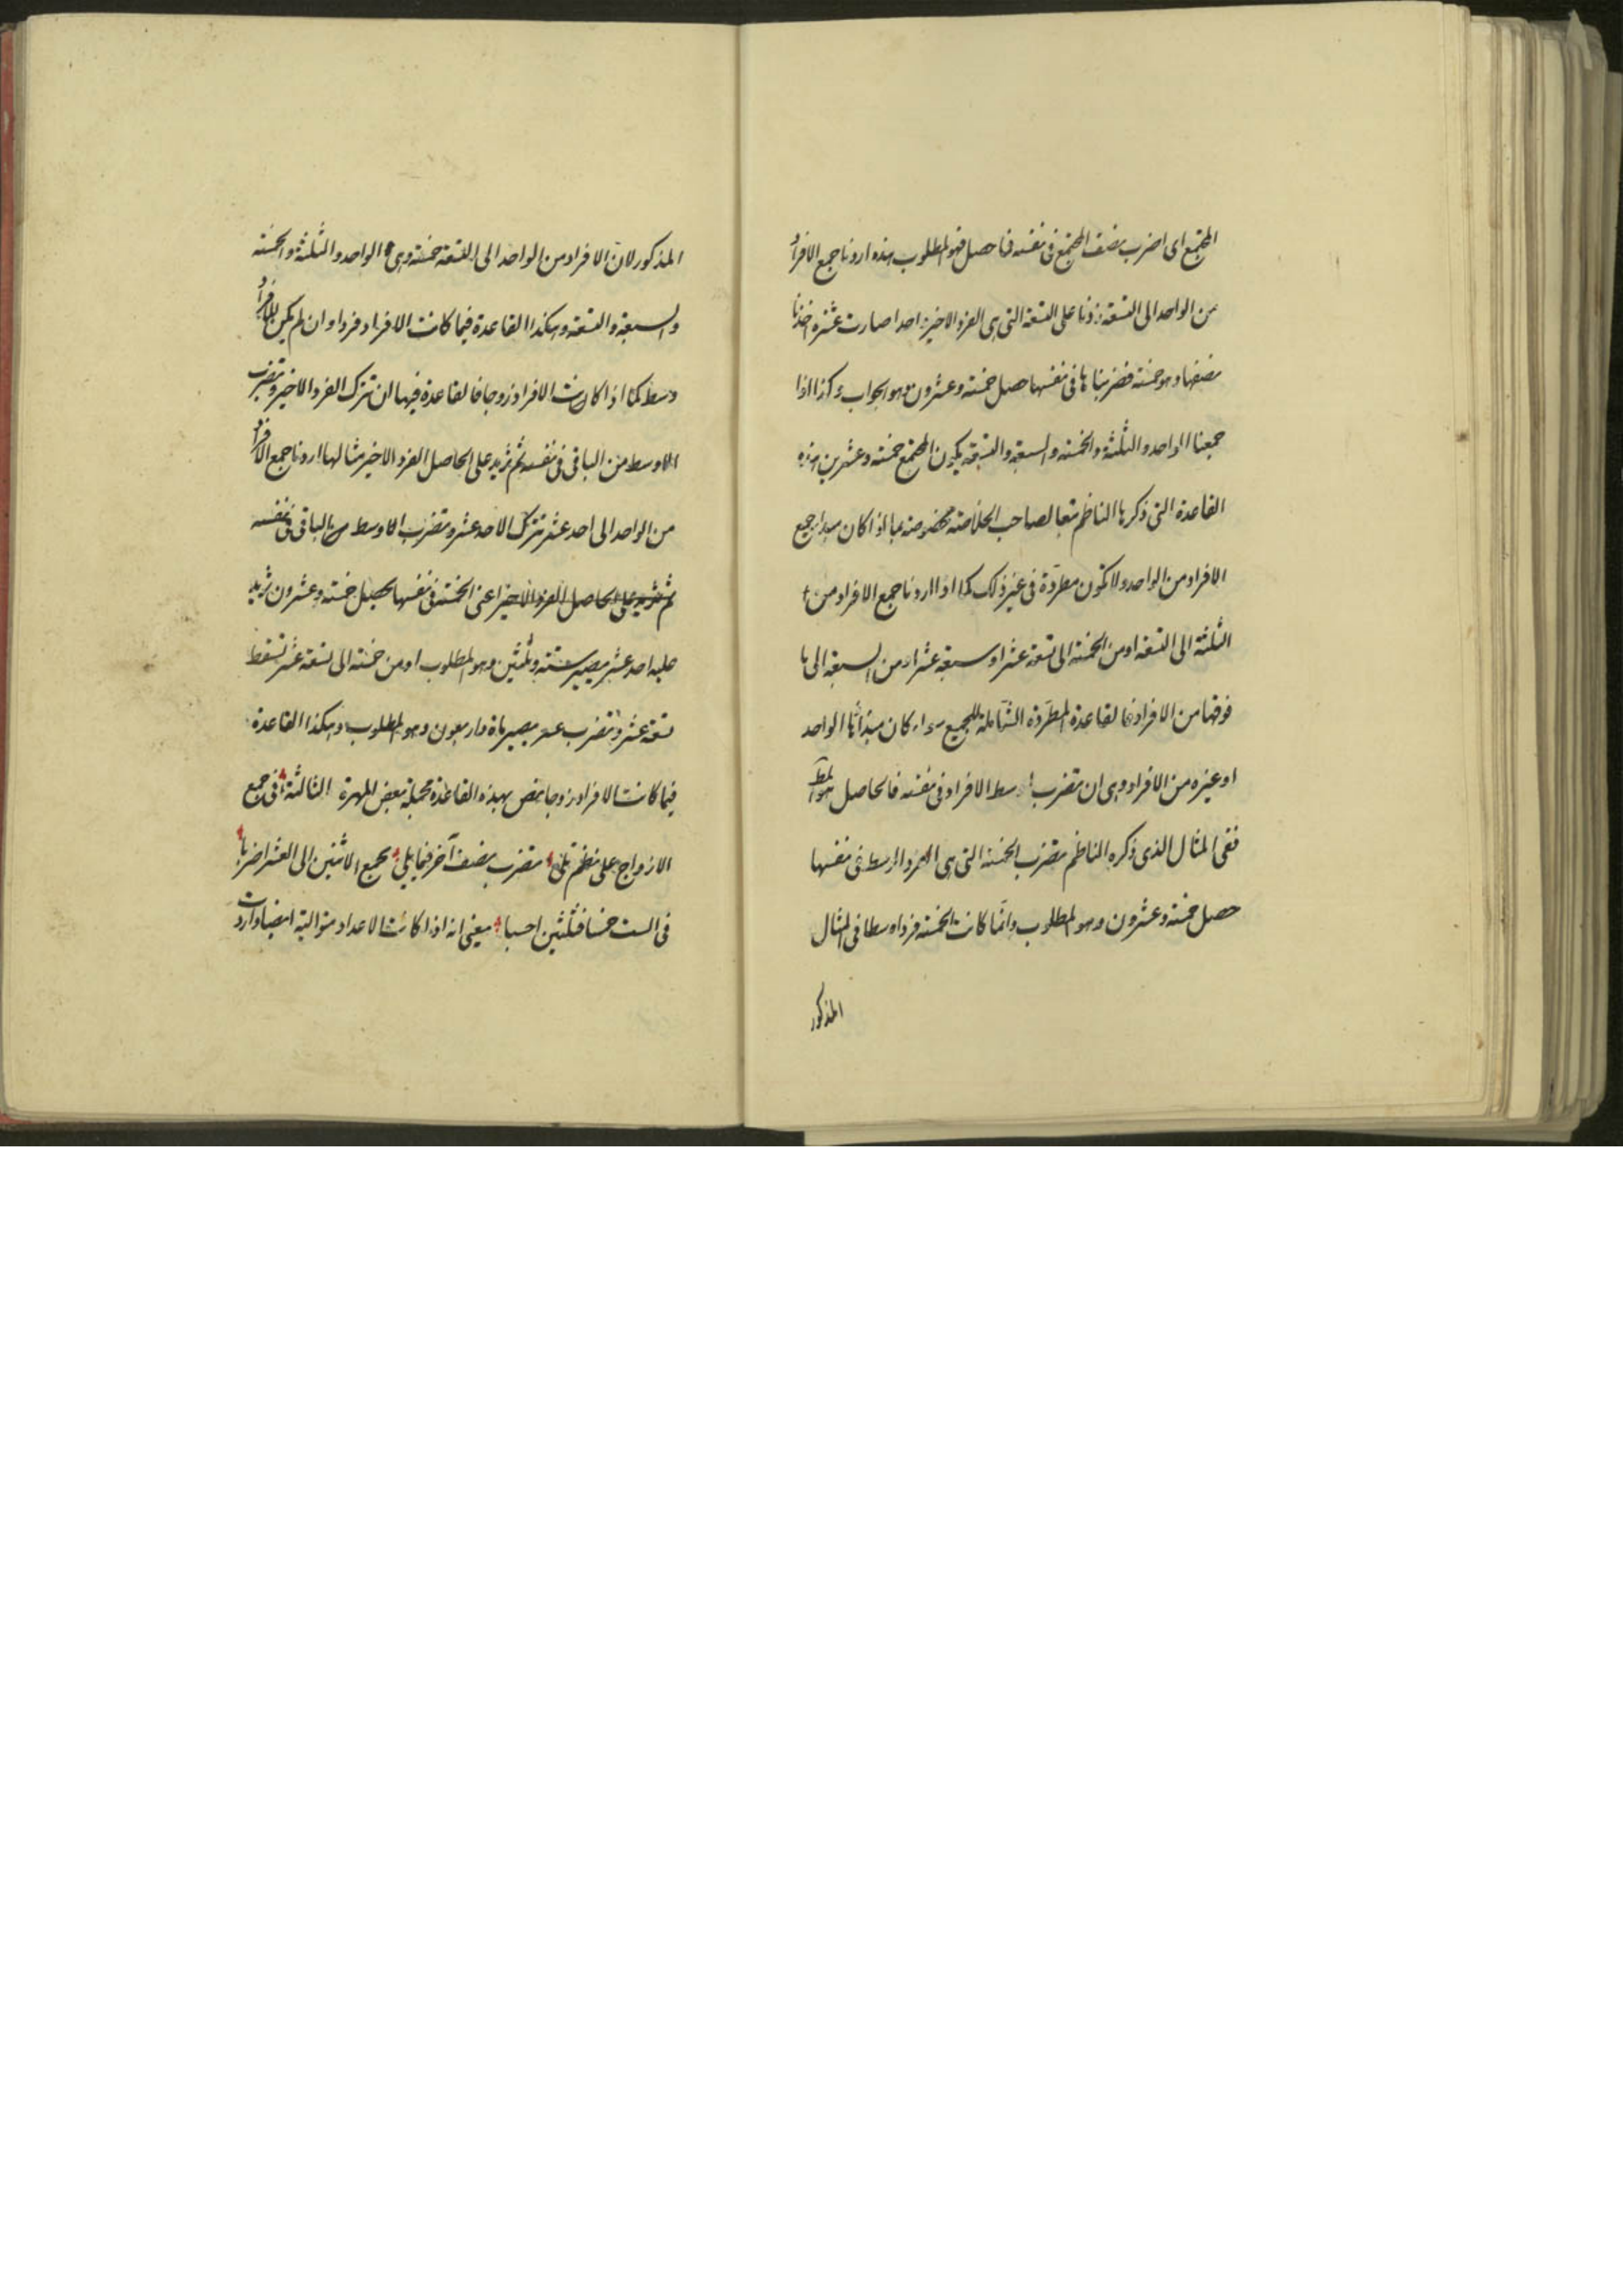 المجتمع اى اضرب نصف المجتمع فى نفسه فما حصل فهو المطلوب هذه اردنا جمع الافراد
من الواحد الى التسعة زدنا على التسعة التى هى الفرد الاخير واحدا صارت عشرة اخذنا
نصفها وهو خمسة فضربناها فى نفسها حصل خمسة وعشرون وهو الجواب وكذا اذا
جمعنا الواحد والثلثة والخمسة والسبعة والتسعة يكون المجتمع خمسة وعشرين هذه
القاعدة التى ذكرها الناظم تبعا لصاحب الخلاصة مخصوصة بما اذا كان مبدا جميع
الافراد من الواحد ولا تكون مطردة فى غير ذلك كما اذا اردنا جمع الافراد من
الثلثة الى التسعة او من الخمسة الى تسعة عشر او سبعة عشر او من السبعة الى ما
فوقها من الافراد فالقاعدة المطردة الشاملة للجميع سواء كان مبدأها الواحد
او غيره من الافراد وهى ان تضرب اوسط الافراد فى نفسه فالحاصل هو المط
ففى المثال الذى ذكره الناظم تضرب الخمسة التى هى الفرد الاوسط فى نفسها
حصل خمسة وعشرون وهو المطلوب وانما كانت الخمسة فردا وسطا فى المثال
المذكور
المذكور لان الافراد من الواحد الى التسعة خمسة وهى الواحد والثلثة والخمسة
والسبعة والتسعة وهكذا القاعدة فيما كانت الافراد فردا وان لم يكن للافراد
وسط كما اذا كانت الافراد زوجا فالقاعدة فيها ان تترك الفرد الاخير وتضرب
الاوسط من الباقى فى نفسه ثم تزيد على الحاصل الفرد الاخير مثالها اردنا جمع الافراد
من الواحد الى احد عشر تترك الاحد عشر وتضرب الاوسط من الباقى فى نفسه
ثم تزيد على الحاصل الفرد الاخير اعنى الخمسة فى نفسها يحصل خمسة وعشرون تزيد
عليه احد عشر يصير ستة وثلثين وهو المطلوب او من خمسة الى تسعة عشر تسقط
تسعة عشر وتضرب يصير مأة واربعون وهو المطلوب وهكذا القاعدة
فيما كانت الافراد زوجا بعض المهرة الثالثة فى جمع
الازواج على نظم تلى تضرب نصف آخر فيما يلى بجمع الاثنين الى العشر اضربا
فى الست خمسا فثلثين احسبا يعنى انه اذا كانت الاعداد متوالية ايضا واردت